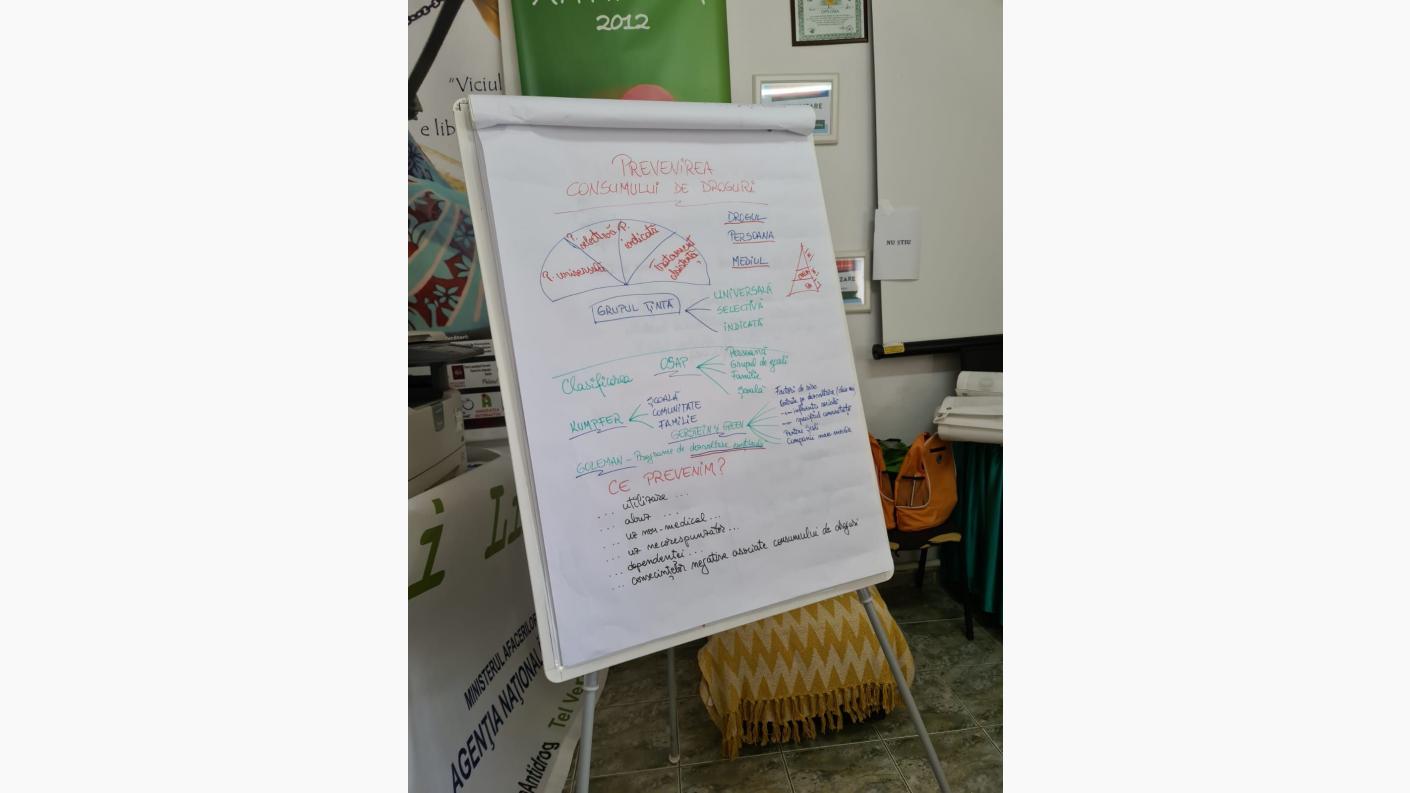 2012
DIPLOMA
"Viciul
e lib
PREVENIREA
CONSUMULUI DE DROGURI
P. universală
P. selectivă
P. indicată
Tratament
asistență
DROGUL
PERSOANA
MEDIUL
NU ȘTIU
GRUPUL ȚINTĂ
UNIVERSALĂ
SELECTIVĂ
INDICATĂ
Clasificarea
OSAP
Persoană
Grupul de școli
Familie
Școală
KUMPFER
ȘCOALĂ
COMUNITATE
FAMILIE
GERSTEIN și GREEN
Factori de risc
influența socială
specificul comunității
Campanii mass-media
GOLEMAN - Programe de dezvoltare
CE PREVENIM?
... utilizare ...
... abuz ...
... uz non-medical ...
... uz necorespunzător ...
... dependenței ...
... consecințelor negative asociate consumului de droguri
MINISTERUL AFACERILOR
AGENȚIA NAȚIONAL
Antidrog
Tel Ver